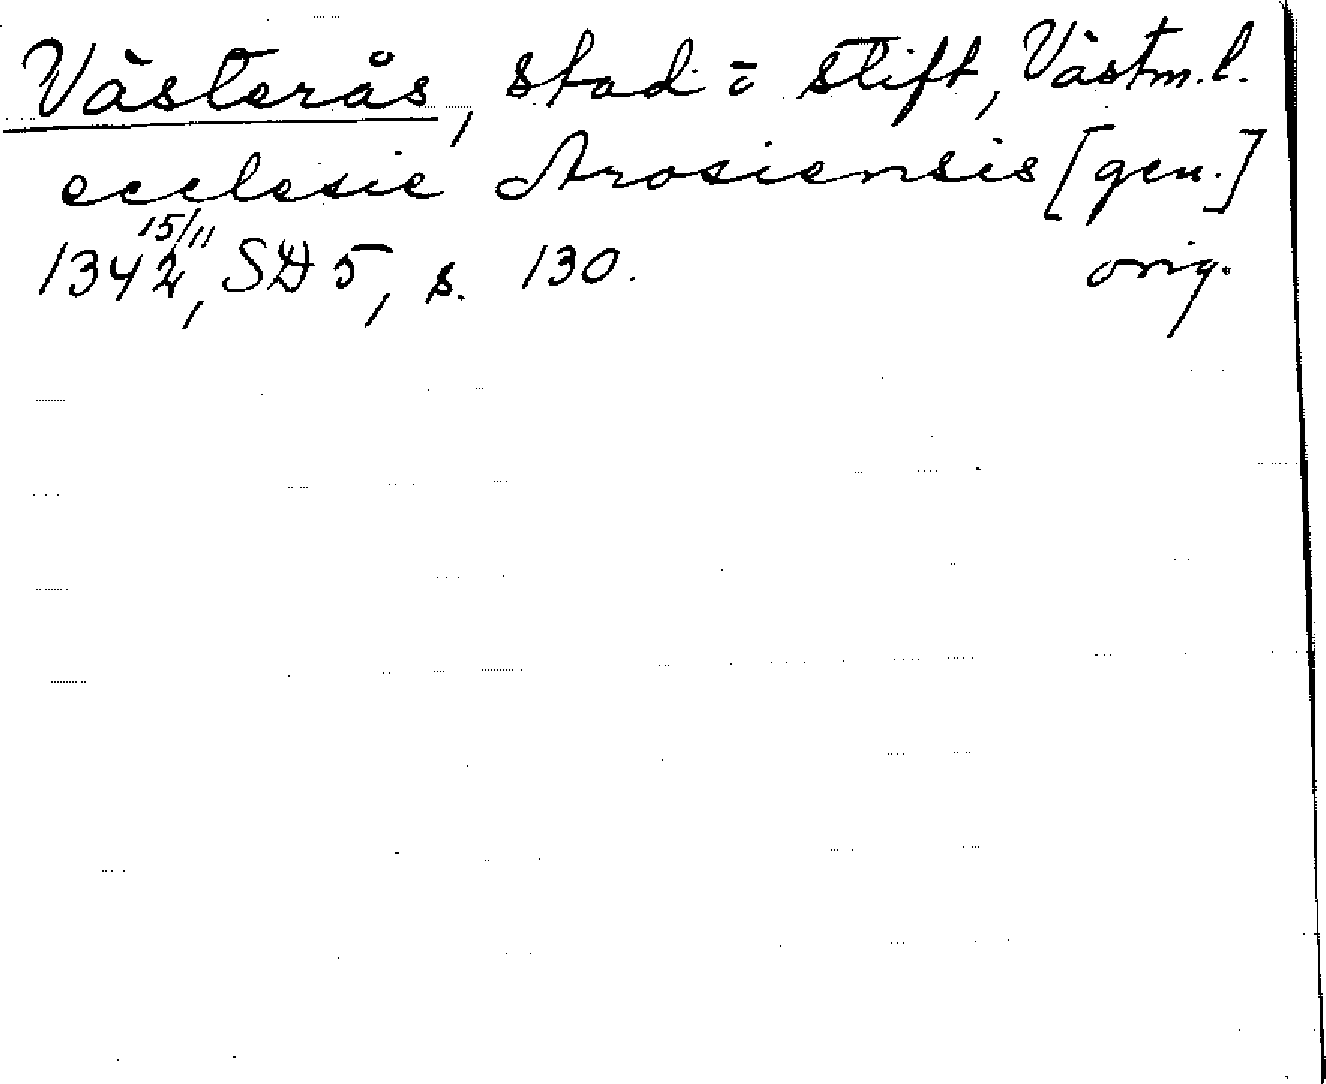 Västerås, stad o stift, Västm.l.
ecclesie Arosiensis [gen.]
1342 15/11, SD 5, s. 130. orig.